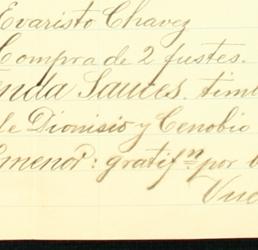 Evaristo Chavez
Compra de 2 fustes.
nda Sauces. timb
le Dionisio y Cenobio
menor: gratifn. por
Vuc